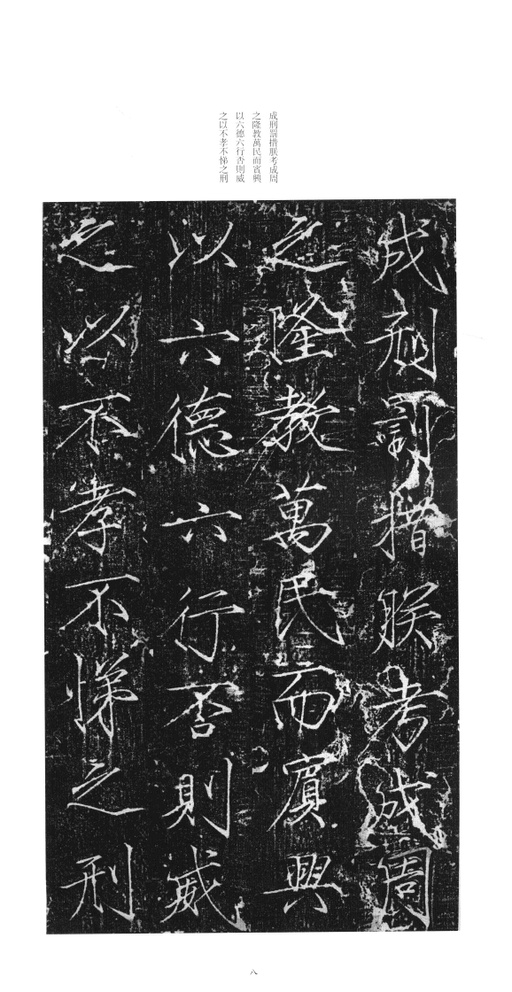 成刑罰措朕考成周
之隆教萬民而賓興
以六德六行否則威
之以不孝不悌之刑
成刑罰措朕考成周
之隆教萬民而賓興
以六德六行否則威
之以不孝不悌之刑
八